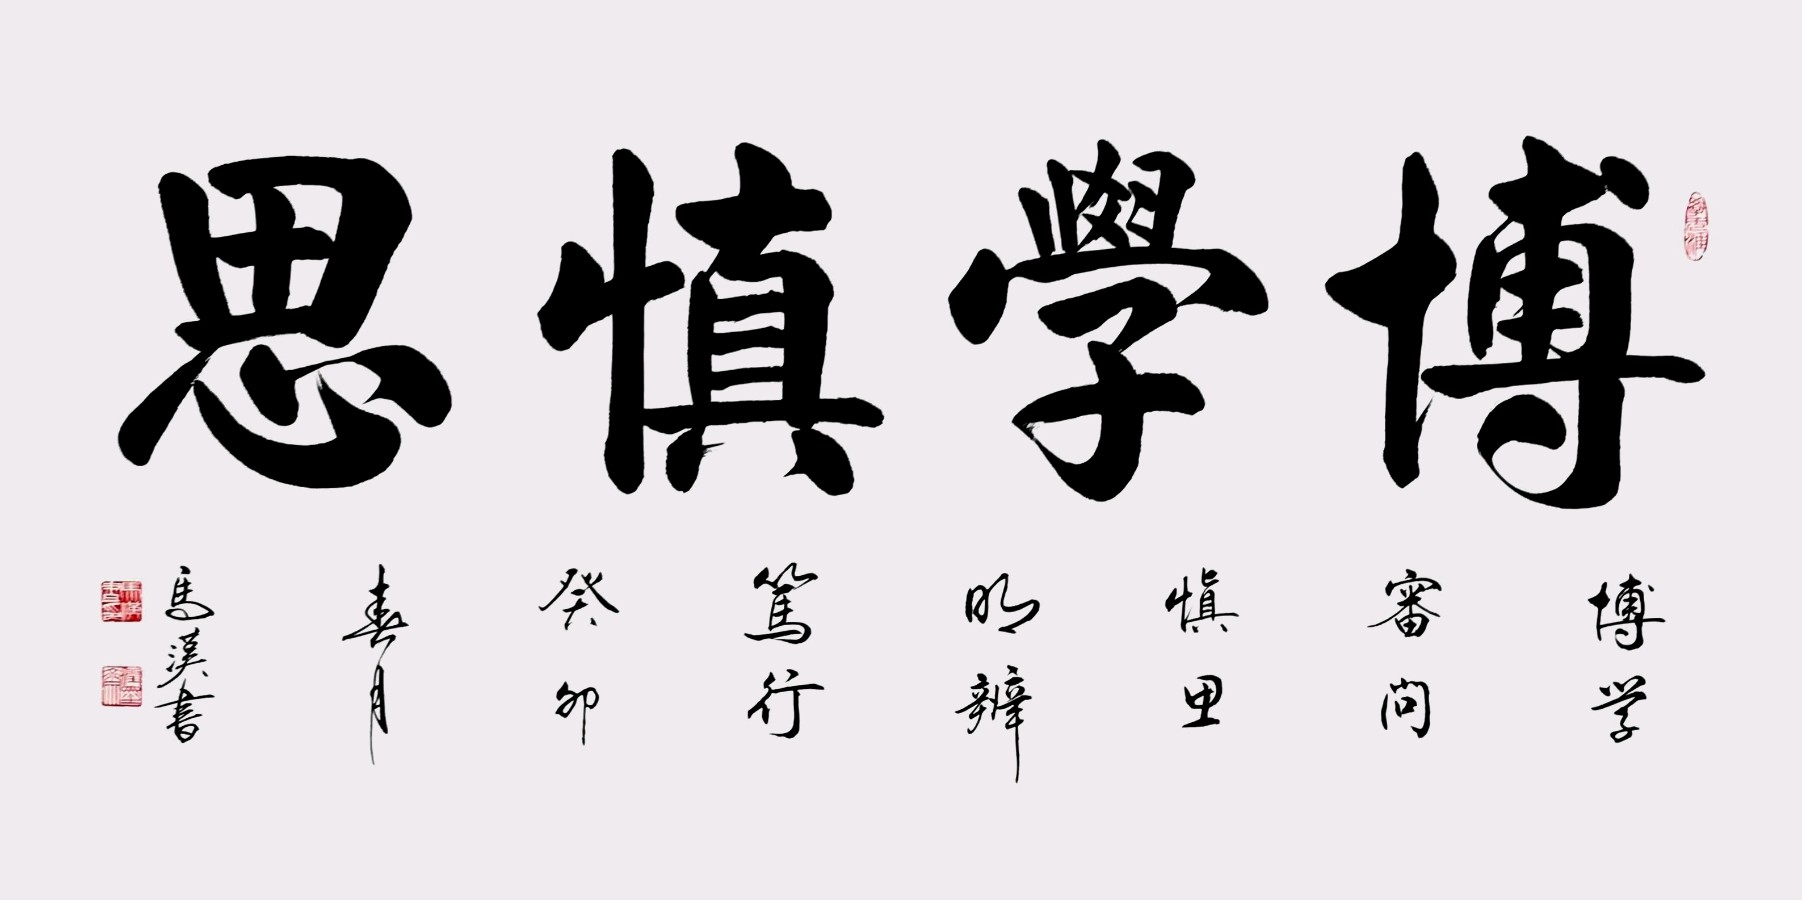 博學慎思
博学
審問
慎思
明辨
篤行
癸卯
春月
馬漢書